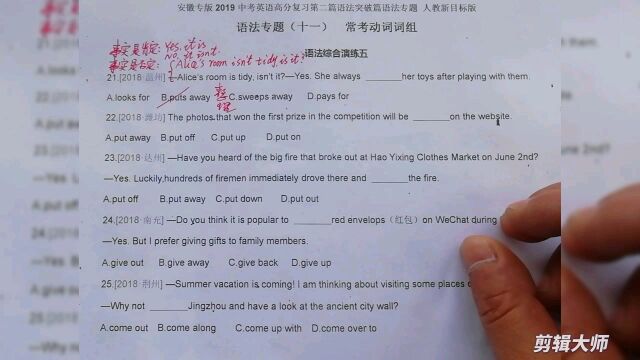 安徽专版 2019 中考英语高分复习第二篇语法突破篇语法专题 人教新目标版
语法专题（十一） 常考动词词组
语法综合演练五
事实是肯定: Yes. it is
No it isn't.
事实是否定: Alice's room isn't tidy, is it?
21.[2018·温州] —Alice's room is tidy, isn't it?—Yes. She always ______her toys after playing with them.
A.looks for B.puts away C.sweeps away D.pays for
整理
22.[2018·潍坊] The photos that won the first prize in the competition will be ______on the website.
A.put away B.put off C.put up D.put on
23.[2018·达州] —Have you heard of the big fire that broke out at Hao Yixing Clothes Market on June 2nd?
—Yes. Luckily,hundreds of firemen immediately drove there and ______the fire.
A.put off B.put away C.put down D.put out
24.[2018·南充] —Do you think it is popular to ______red envelops（红包）on WeChat during
—Yes. But I prefer giving gifts to family members.
A.give out B.give away C.give back D.give up
25.[2018·荆州] —Summer vacation is coming! I am thinking about visiting some places
—Why not ______Jingzhou and have a look at the ancient city wall?
A.come out B.come along C.come up with D.come over to
剪辑大师